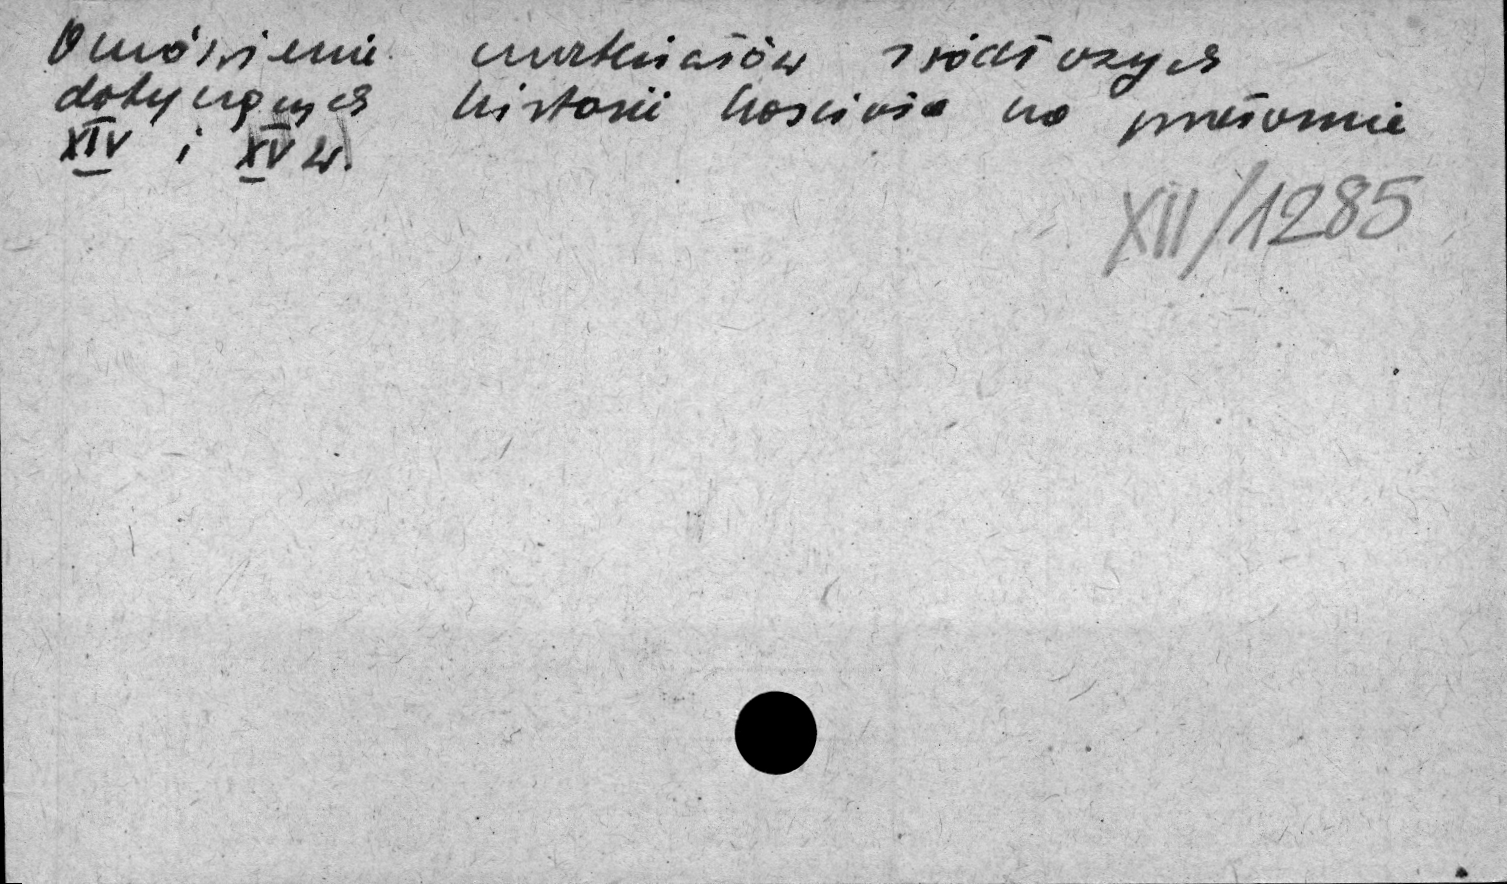 Omówienie materiałów źródłowych
dotyczących historii kościoła na przełomie
XIV i XV w.
XII/1285